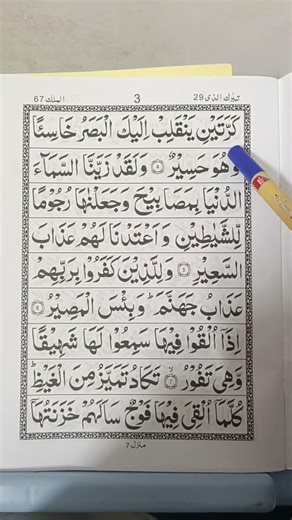 تبٰرك الذی 29
3
الملك 67
كَرَّتَيْنِ يَنْقَلِبْ اِلَيْكَ الْبَصَرُ خَاسِئًا
وَّهُوَ حَسِيْرٌ ۝۴ وَلَقَدْ زَيَّنَّا السَّمَآءَ
الدُّنْيَا بِمَصَابِيْحَ وَجَعَلْنٰهَا رُجُوْمًا
لِّلشَّيٰطِيْنِ وَاَعْتَدْنَا لَهُمْ عَذَابَ
السَّعِيْرِ ۝۵ وَلِلَّذِيْنَ كَفَرُوْا بِرَبِّهِمْ
عَذَابُ جَهَنَّمَ ؕ وَبِئْسَ الْمَصِيْرُ ۝۶
اِذَاۤ اُلْقُوْا فِيْهَا سَمِعُوْا لَهَا شَهِيْقًا
وَّهِيَ تَفُوْرُ ۝۷ تَكَادُ تَمَيَّزُ مِنَ الْغَيْظِ ؕ
كُلَّمَاۤ اُلْقِيَ فِيْهَا فَوْجٌ سَاَلَهُمْ خَزَنَتُهَاۤ
منزل 7